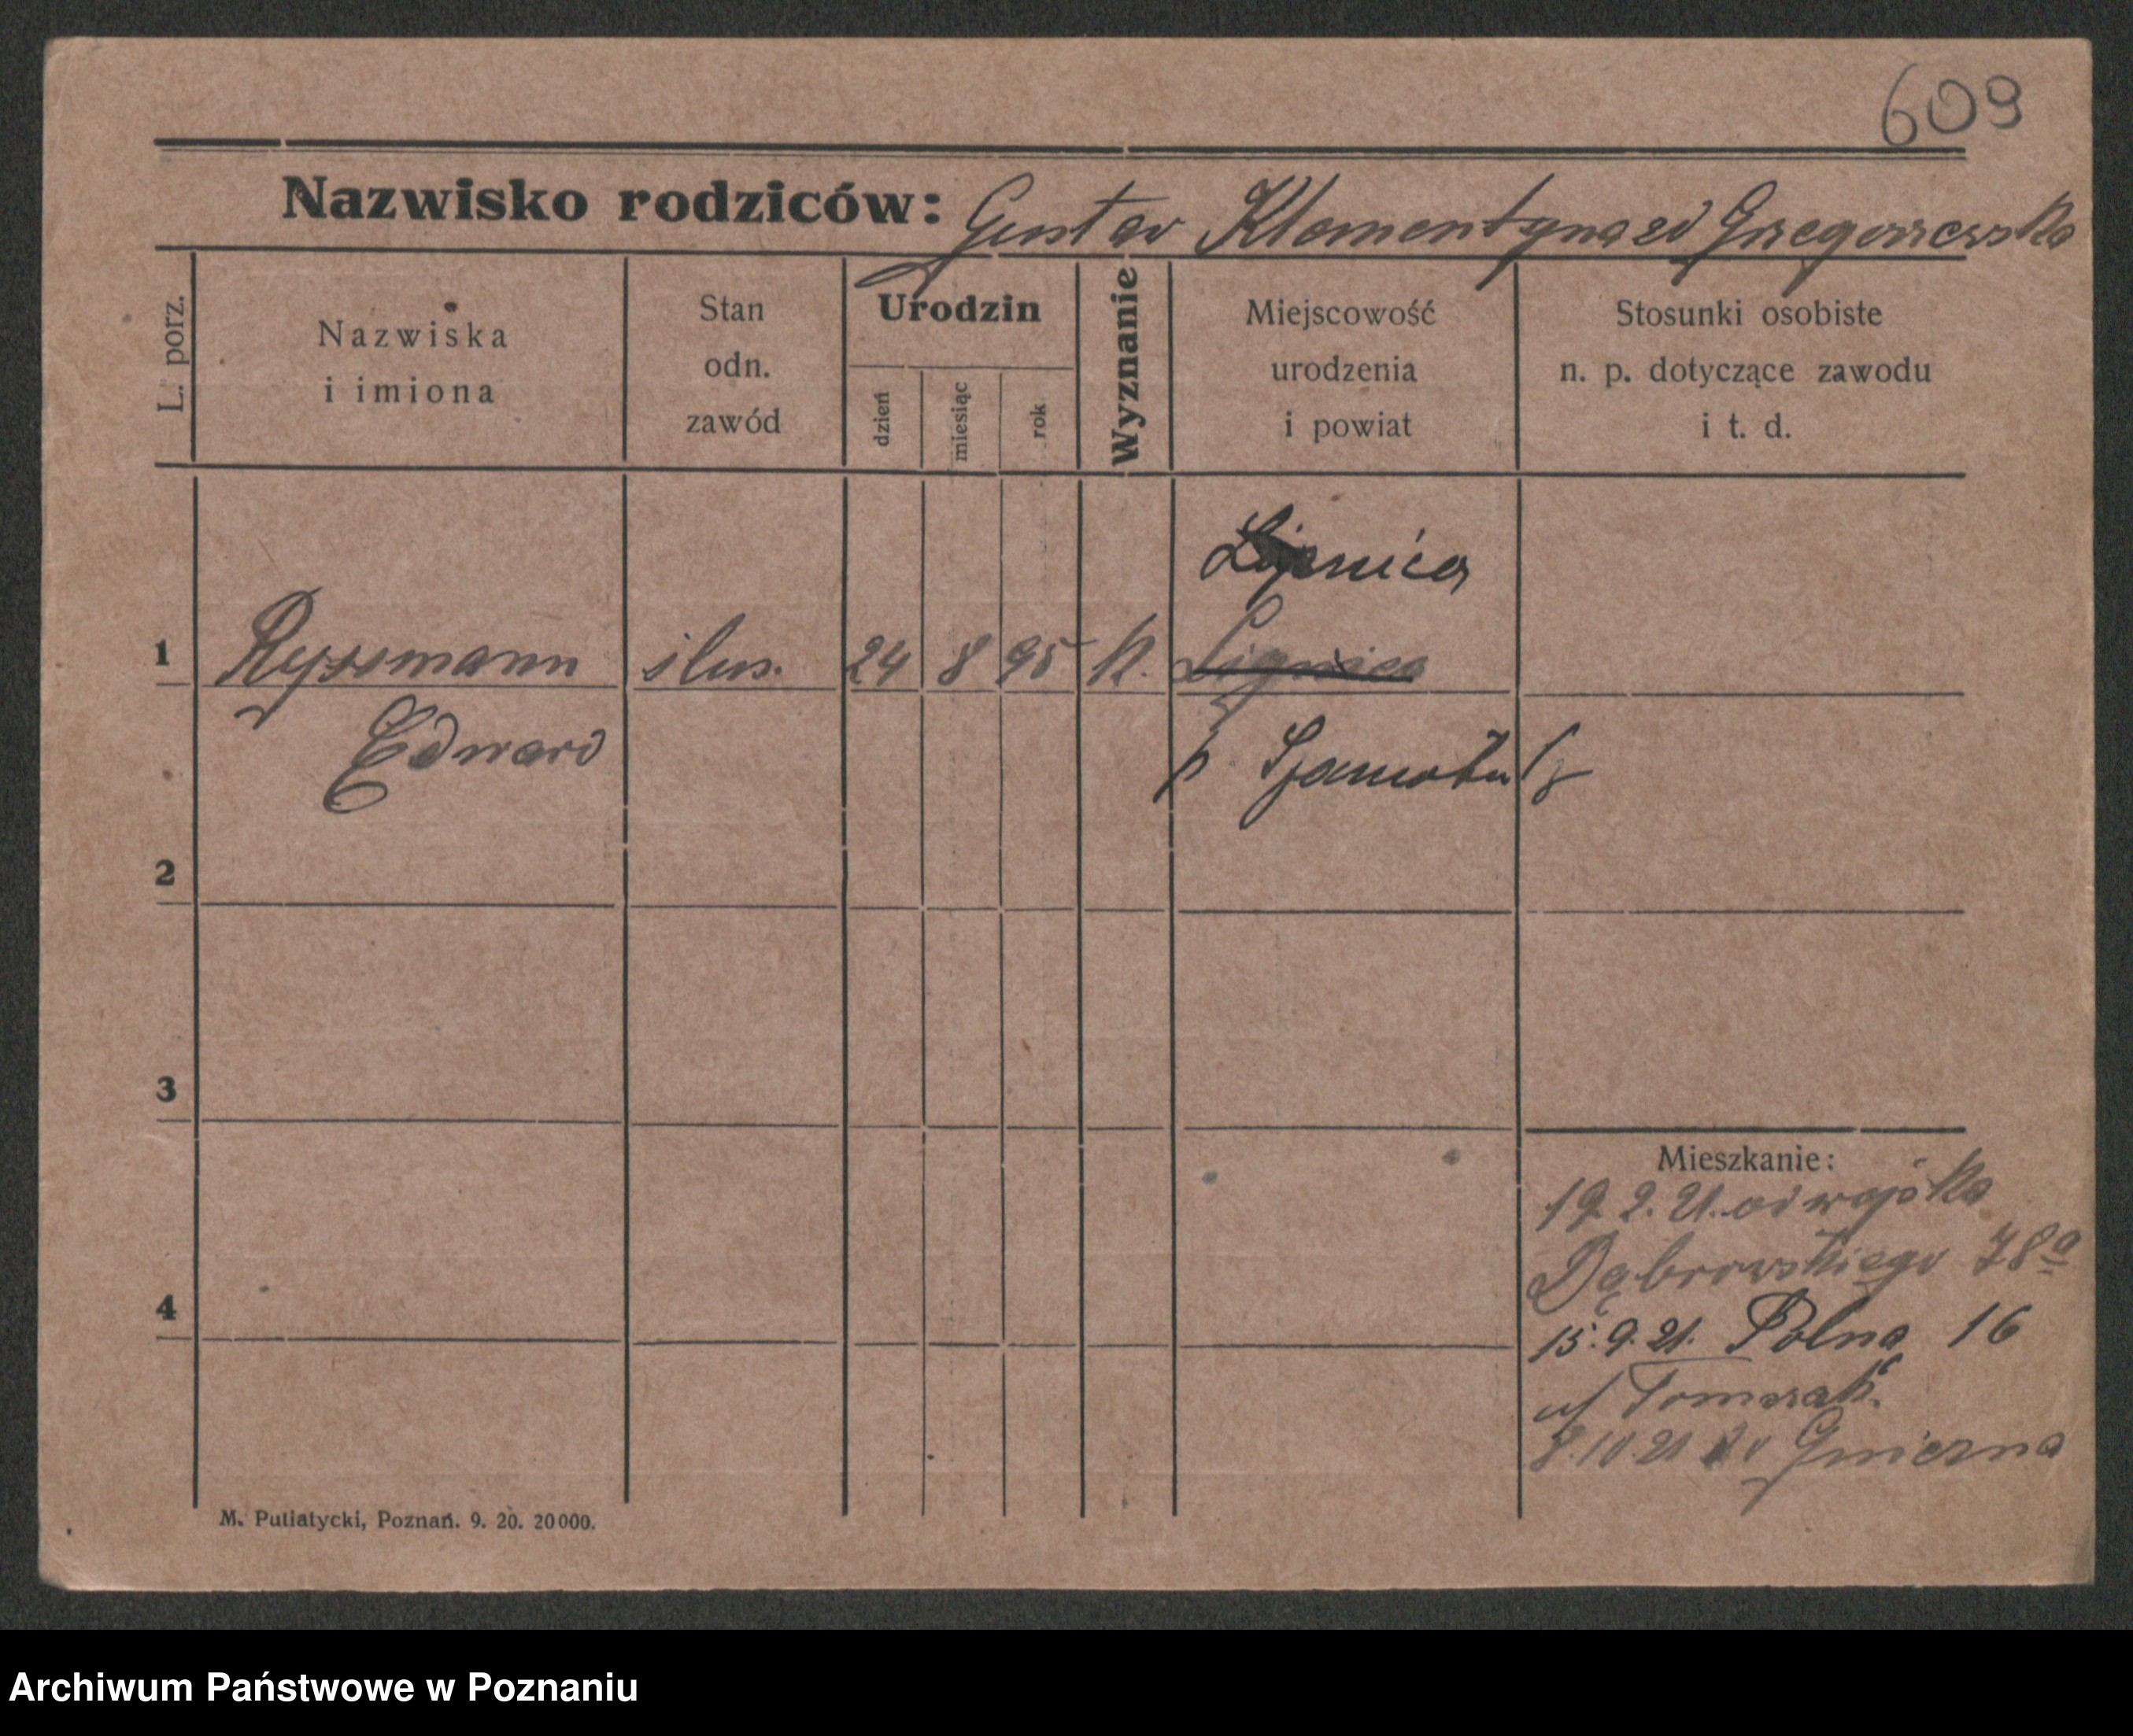 609
Nazwisko rodziców: Gustav Klementyna zd Grzegorzewska
L. porz.
Nazwiska
i imiona
Stan
odn.
zawód
Urodzin
dzień
miesiąc
rok
Wyznanie
Miejscowość
urodzenia
i powiat
Stosunki osobiste
n. p. dotyczące zawodu
i t. d.
Lipnica
1 Ryssmann ślus. 24 8 95 k. Lignica
Edward p Szamotuły
2
3
4
Mieszkanie:
19.2.21. od wojska
Dąbrowskiego 78a
15.9.21. Polna 16
u/ Tomszak
8.10.21 Gniezna
M. Putiatycki, Poznań. 9. 20. 20000.
Archiwum Państwowe w Poznaniu